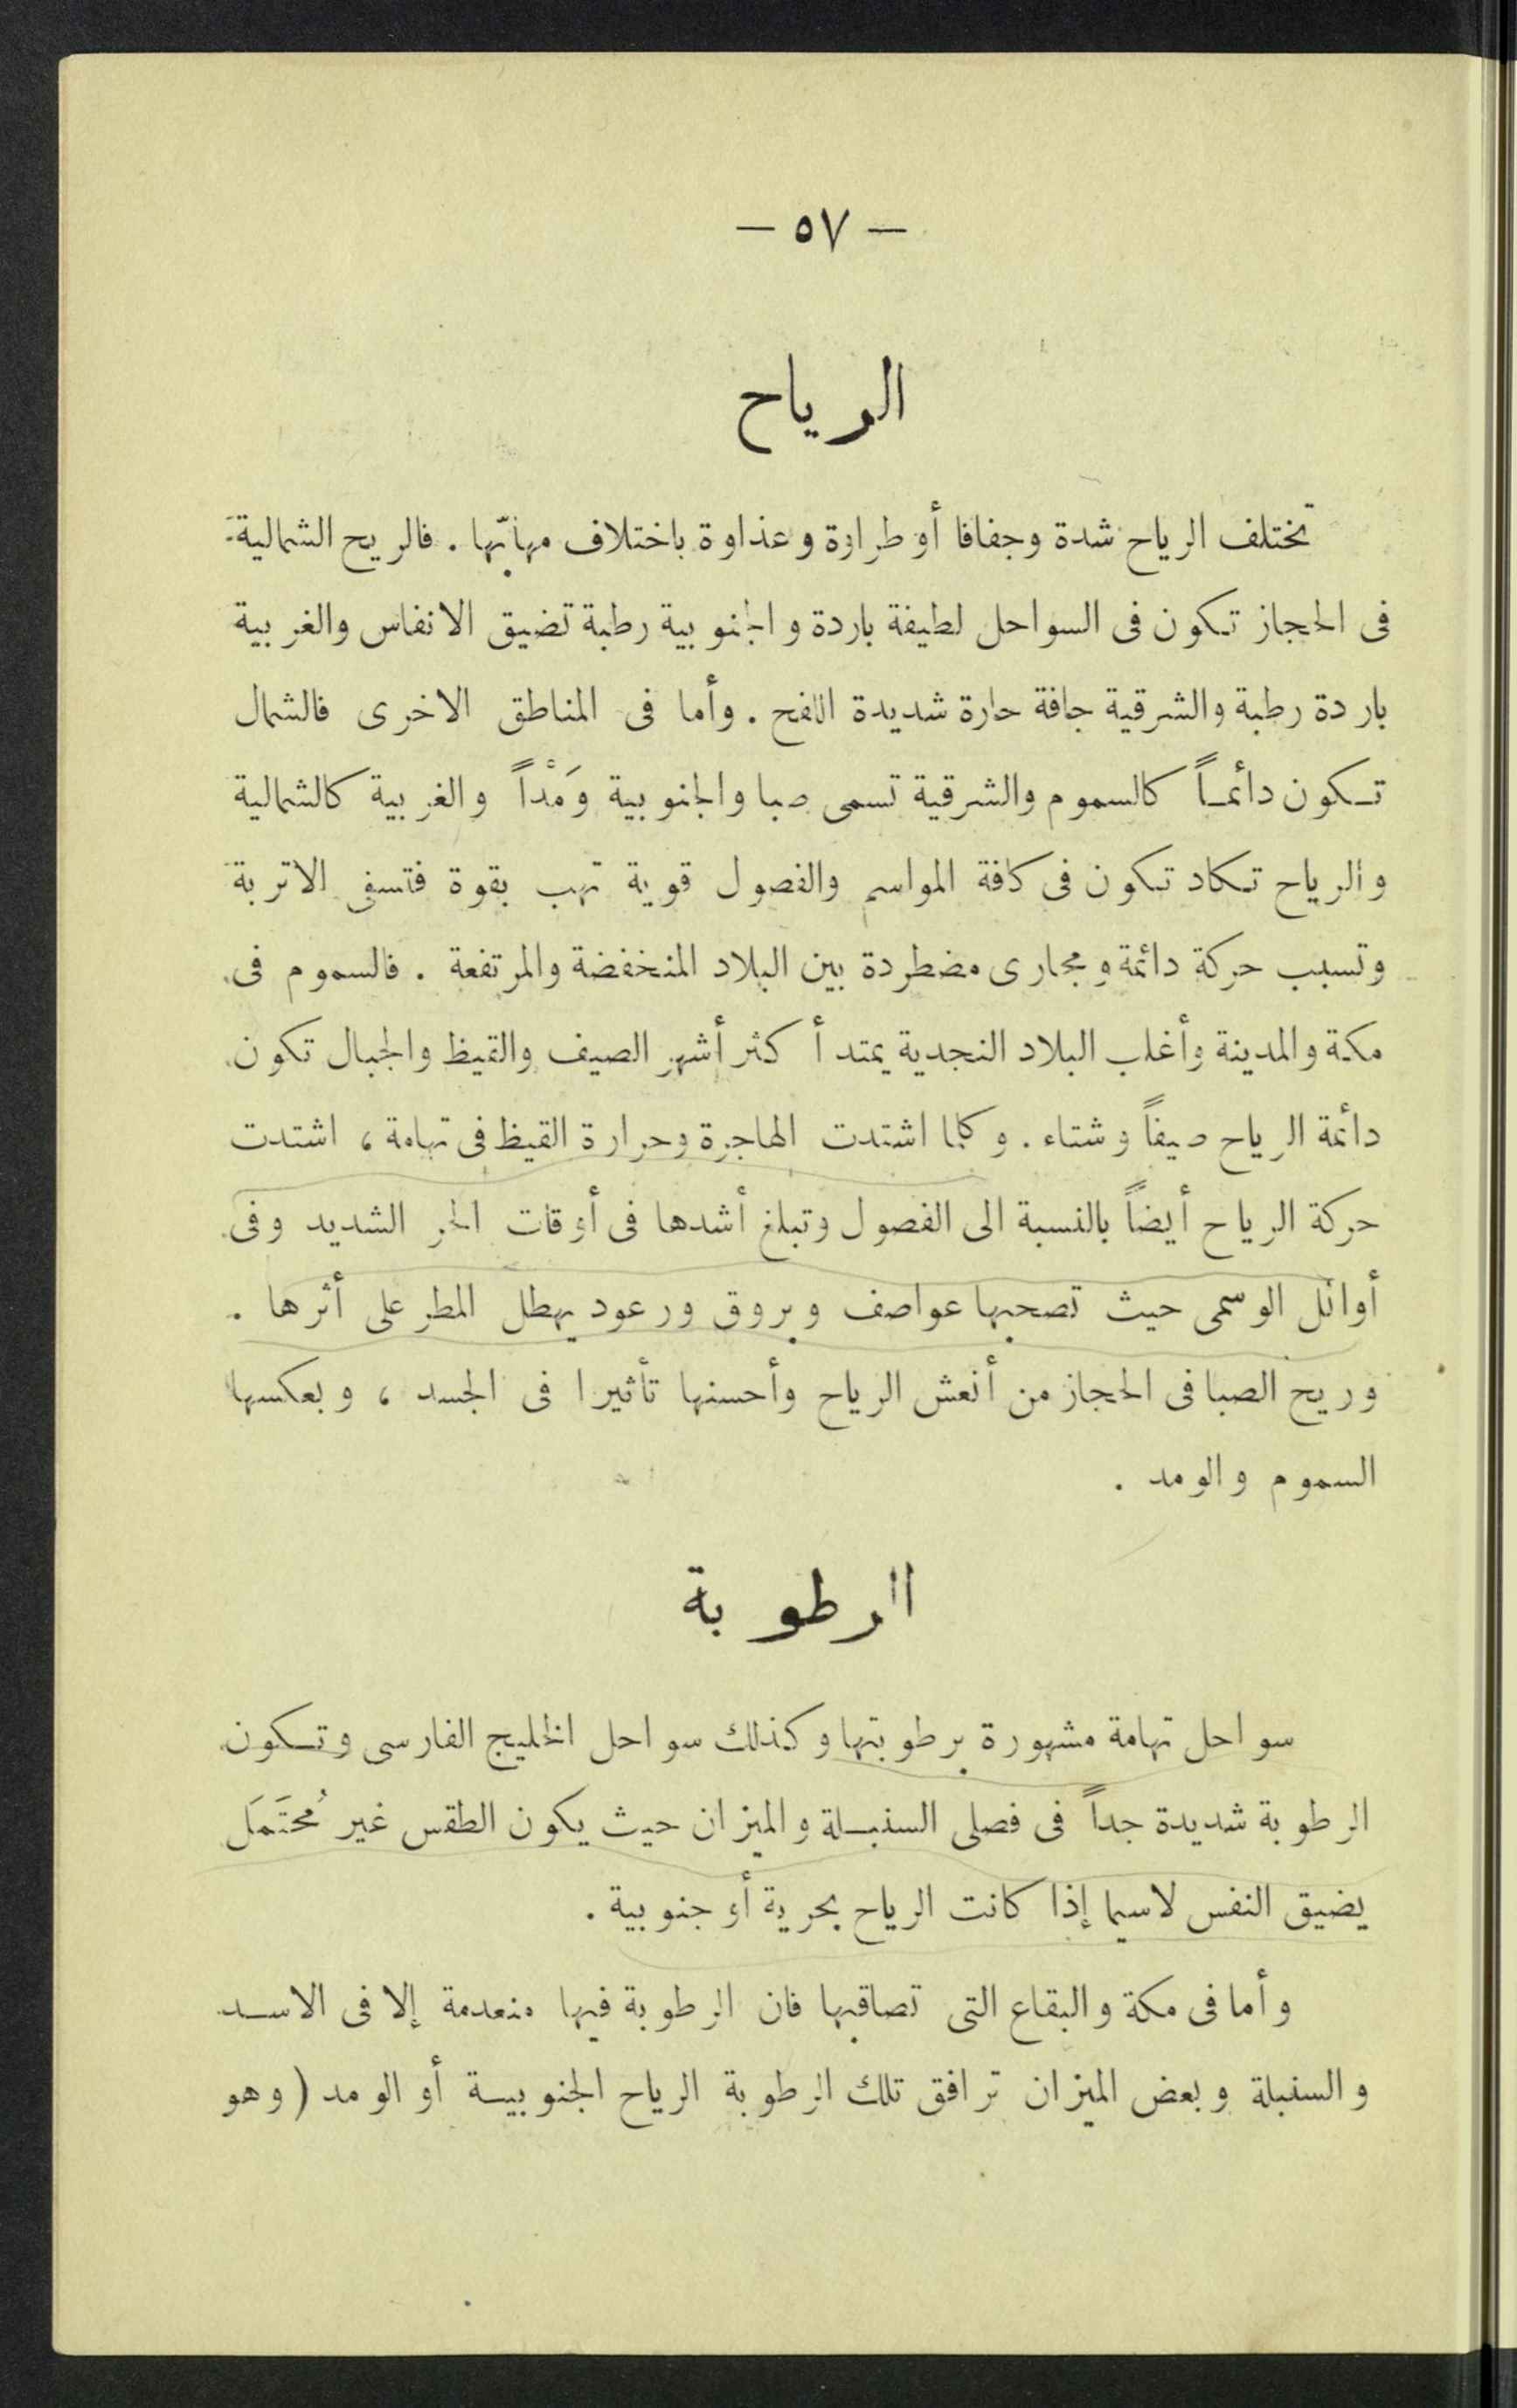 — ٥٧ —
الرياح
تختلف الرياح شدة وجفافا أو طراوة وعذاوة باختلاف مهابّها . فالريح الشمالية
فى الحجاز تكون فى السواحل لطيفة باردة والجنوبية رطبة تضيق الانفاس والغربية
باردة رطبة والشرقية جافة حارة شديدة اللفح . وأما فى المناطق الاخرى فالشمال
تكون دائمـاً كالسموم والشرقية تسمى صبا والجنوبية وَمْداً والغربية كالشمالية
والرياح تكاد تكون فى كافة المواسم والفصول قوية تهب بقوة فتسفى الاتربة
وتسبب حركة دائمة ومجارى مضطردة بين البلاد المنخفضة والمرتفعة . فالسموم فى
مكة والمدينة وأغلب البلاد النجدية يمتد أكثر أشهر الصيف والقيظ والجبال تكون
دائمة الرياح صيفاً وشتاء . وكلما اشتدت الهاجرة وحرارة القيظ فى تهامة ، اشتدت
حركة الرياح أيضاً بالنسبة الى الفصول وتبلغ أشدها فى أوقات الحر الشديد وفى
أوائل الوسمى حيث تصحبها عواصف وبروق ورعود يهطل المطر على أثرها .
وريح الصبا فى الحجاز من أنعش الرياح وأحسنها تأثيرا فى الجسد ، وبعكسها
السموم والومد .
الرطوبة
سواحل تهامة مشهورة برطوبتها وكذلك سواحل الخليج الفارسى وتكون
الرطوبة شديدة جداً فى فصلى السنبـلة والميزان حيث يكون الطقس غير مُحتَمَل
يضيق النفس لاسيما إذا كانت الرياح بحرية أو جنوبية .
وأما فى مكة والبقاع التى تصاقبها فان الرطوبة فيها منعدمة إلا فى الاسـد
والسنبلة وبعض الميزان ترافق تلك الرطوبة الرياح الجنوبيـة أو الومد ( وهو